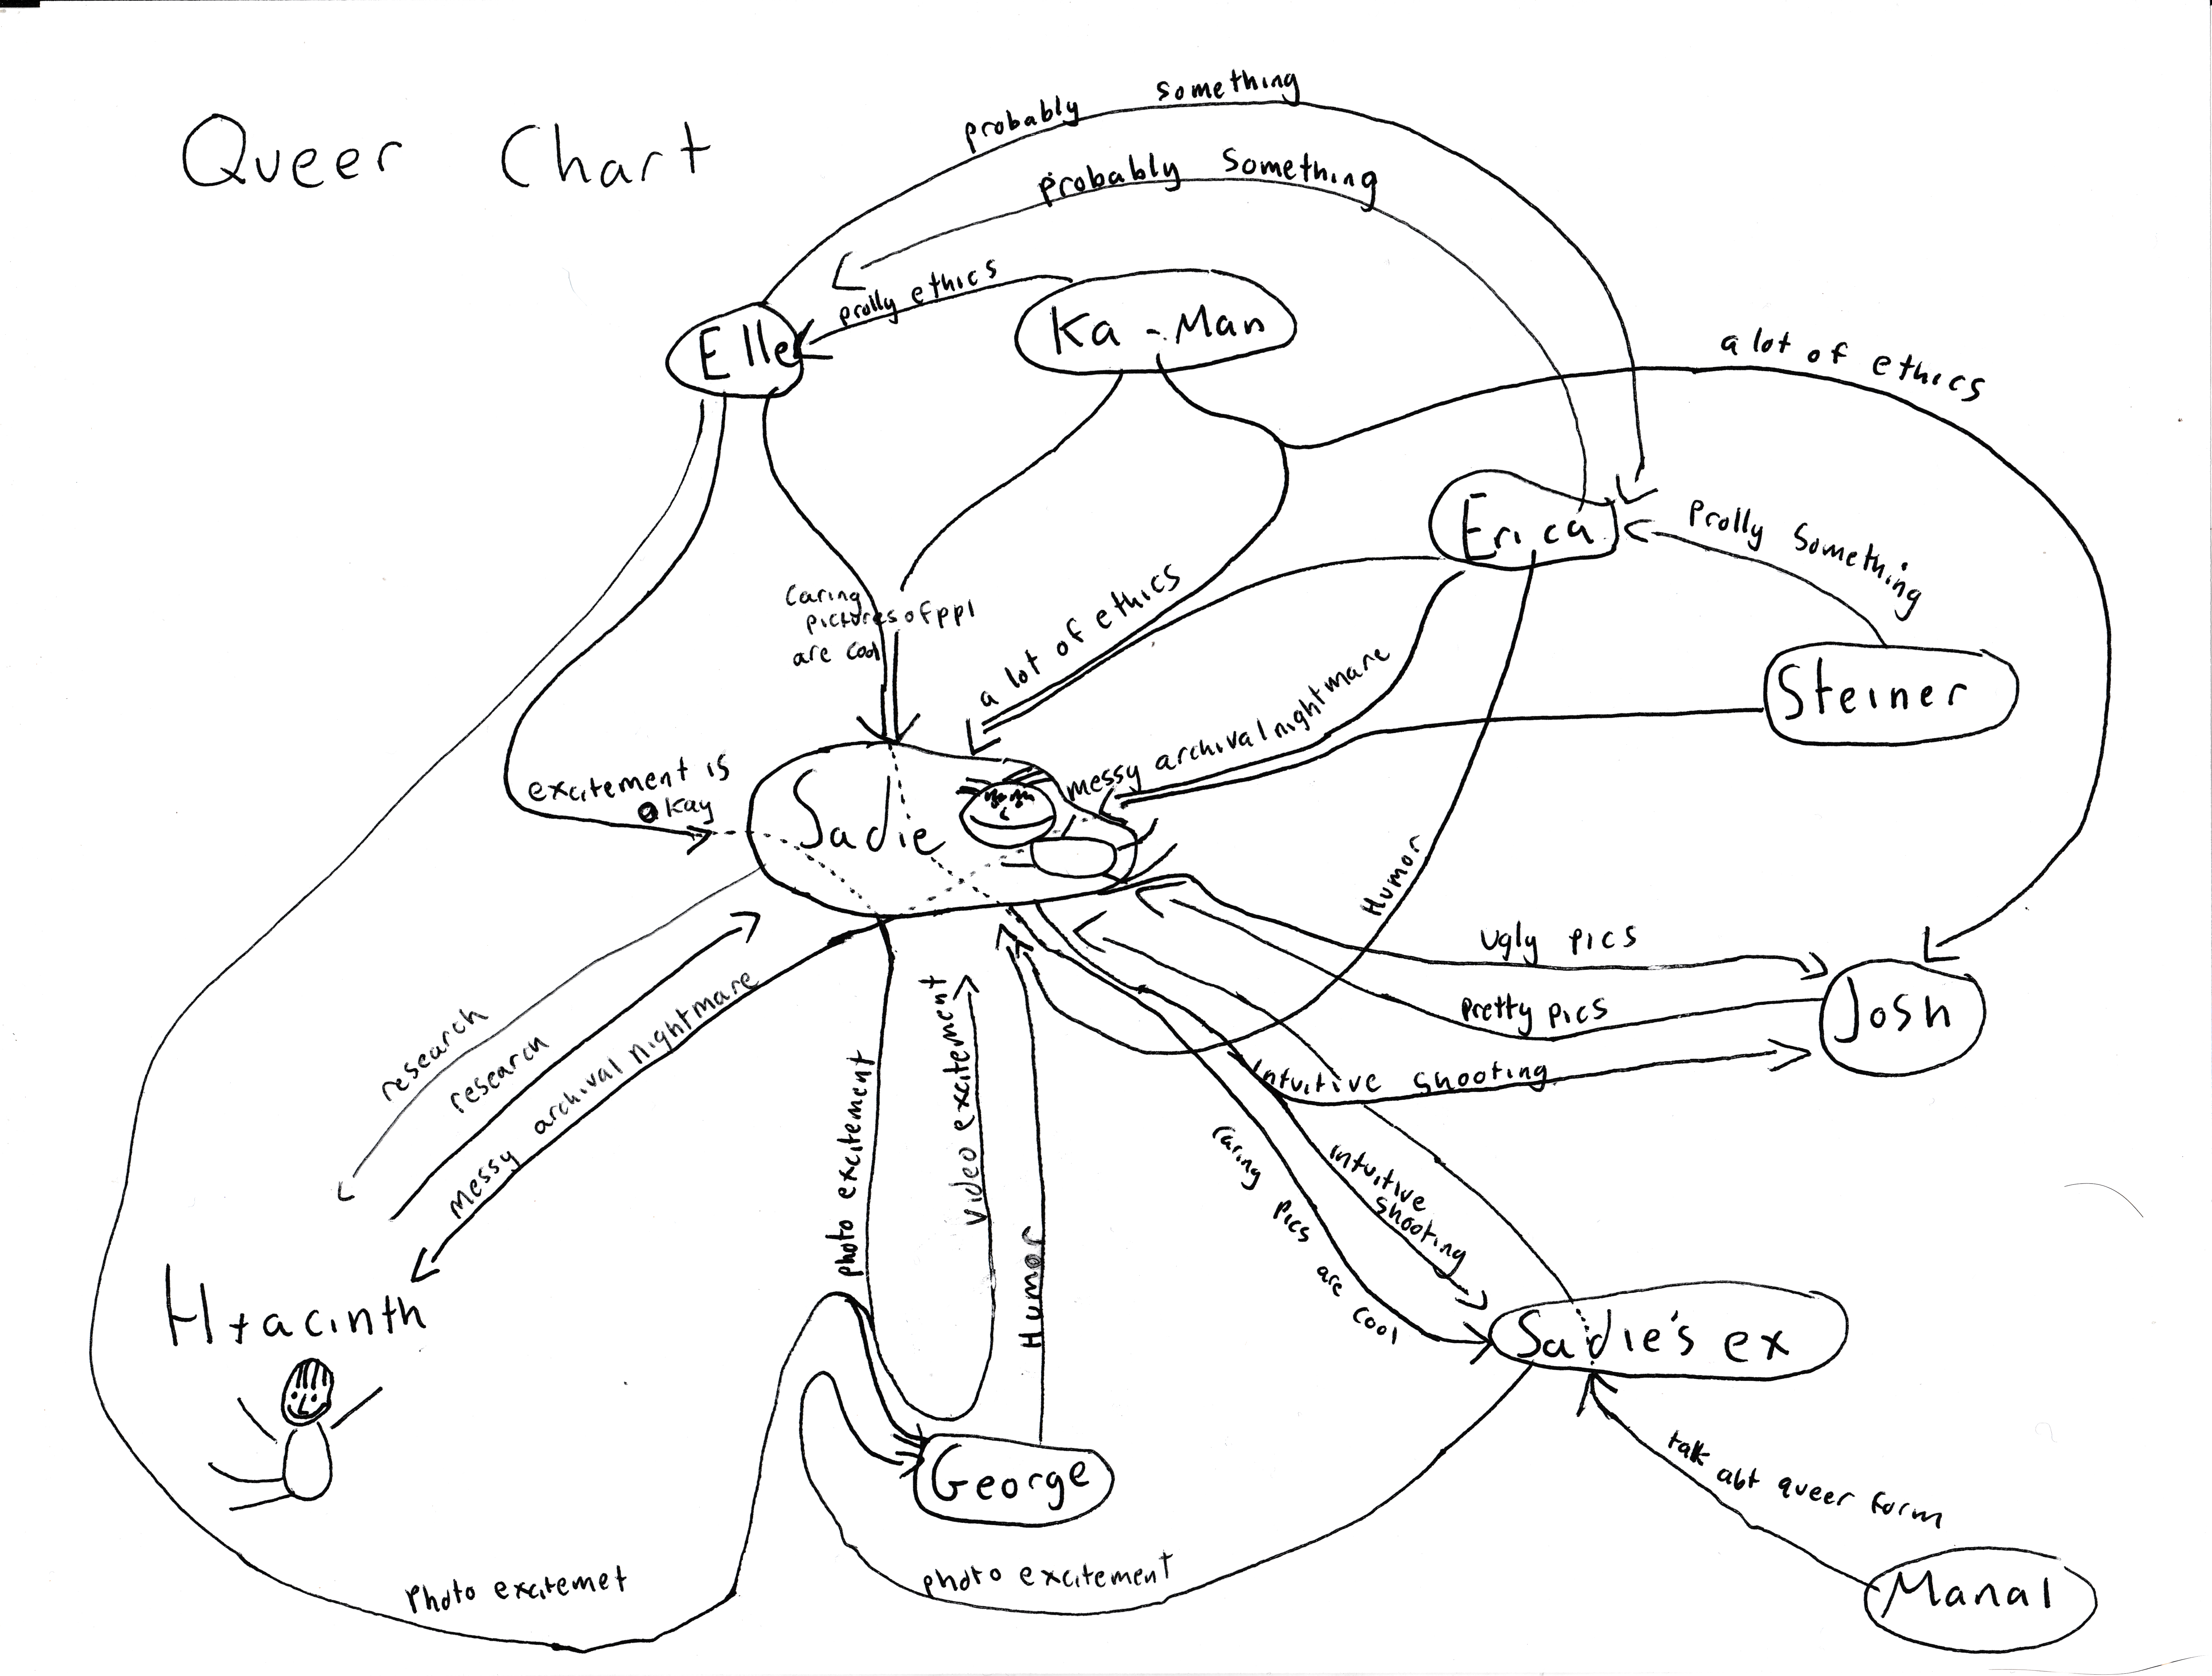 Queer Chart
probably something
probably something
prolly ethics
Elle
Ka-Man
a lot of ethics
Erica
Prolly Something
Caring
pictures of ppl
are cool
a lot of ethics
Steiner
messy archival nightmare
excitement is
okay
Sadie
Humor
Ugly pics
Pretty pics
Josh
Intuitive shooting
research
research
messy archival nightmare
photo excitement
video excitement
Humor
caring pics are cool
intuitive
shooting
Hyacinth
Sadie's ex
George
talk abt queer form
photo excitemet
photo excitement
Manal